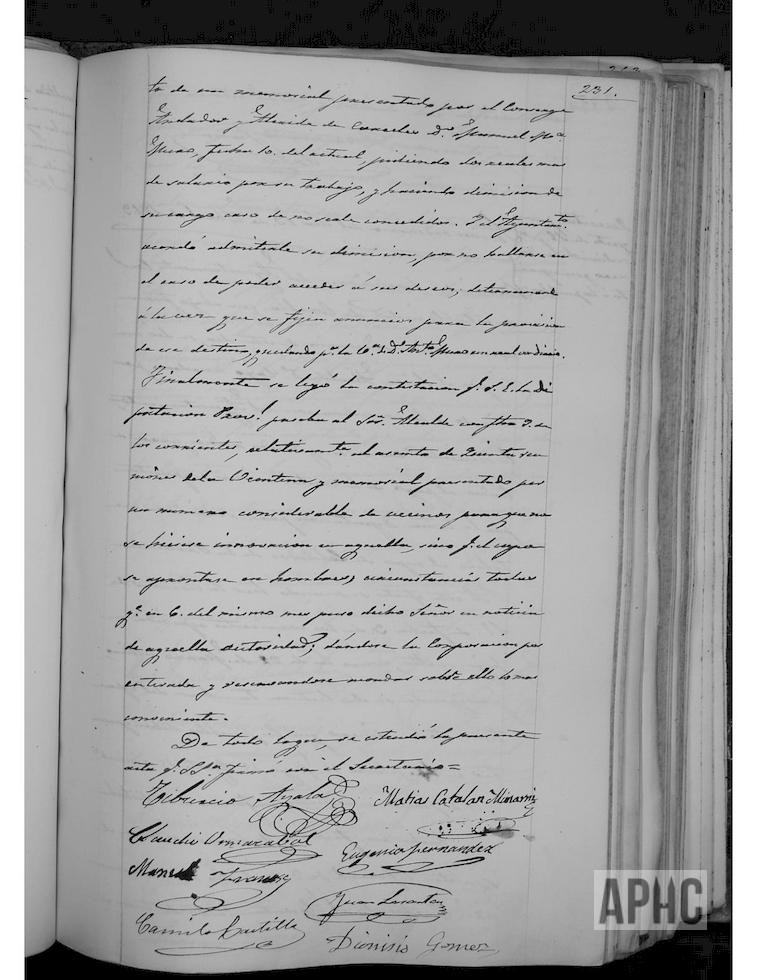 231.
to de un memorial presentado por el Conserge
Andador y Alcaide de Carceles Dn. Manuel Ma.
Muro, fecha 10. del actual, pidiendo dos reales mas
de salario por su trabajo, y haciendo dimision de
su cargo caso de no serle concedidos. Y el Ayuntamto.
acordó admitirle su dimision, por no hallarse en
el caso de poder acceder á sus deseos; determinando
á la vez que se fijen anuncios para la provision
de ese destino, quedando pr. la de Dn. Anto. Muro un real diario.
Finalmente se leyó la contestacion q. S. E. la Di
putacion Provl. pasaba al Sor. Alcalde con fha 7. de
los corrientes, relativamte. al asunto de Quinta reu
niones de la Vicentina y memorial presentado por
un número considerable de vecinos para que no
se hiciese innovacion en aquella, sino q. el cupo
se aprontase en hombres; circunstancias todas
qe. en 6. del mismo mes puso dicho Señor en noticia
de aquella autoridad; dándose la Corporacion por
enterada y reservandose acordar sobre ello lo mas
conveniente.
De todo lo que, se estendió la presente
acta q. SSa. firmó con el Secretario=
Tiburcio Ayala
Matias Catalan Minarriz
Claudio
Eugenio Fernandez
Manuel
Juan
Camilo Castilla
Dionisio Gomez
APHC